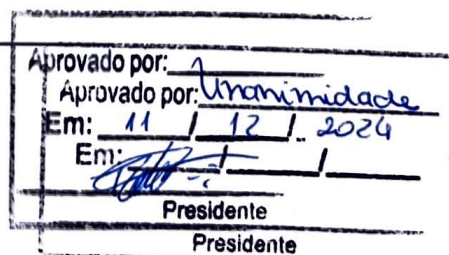 Aprovado por:
Aprovado por: Unanimidade
Em: 11 / 12 / 2024
Em: / /
Presidente
Presidente